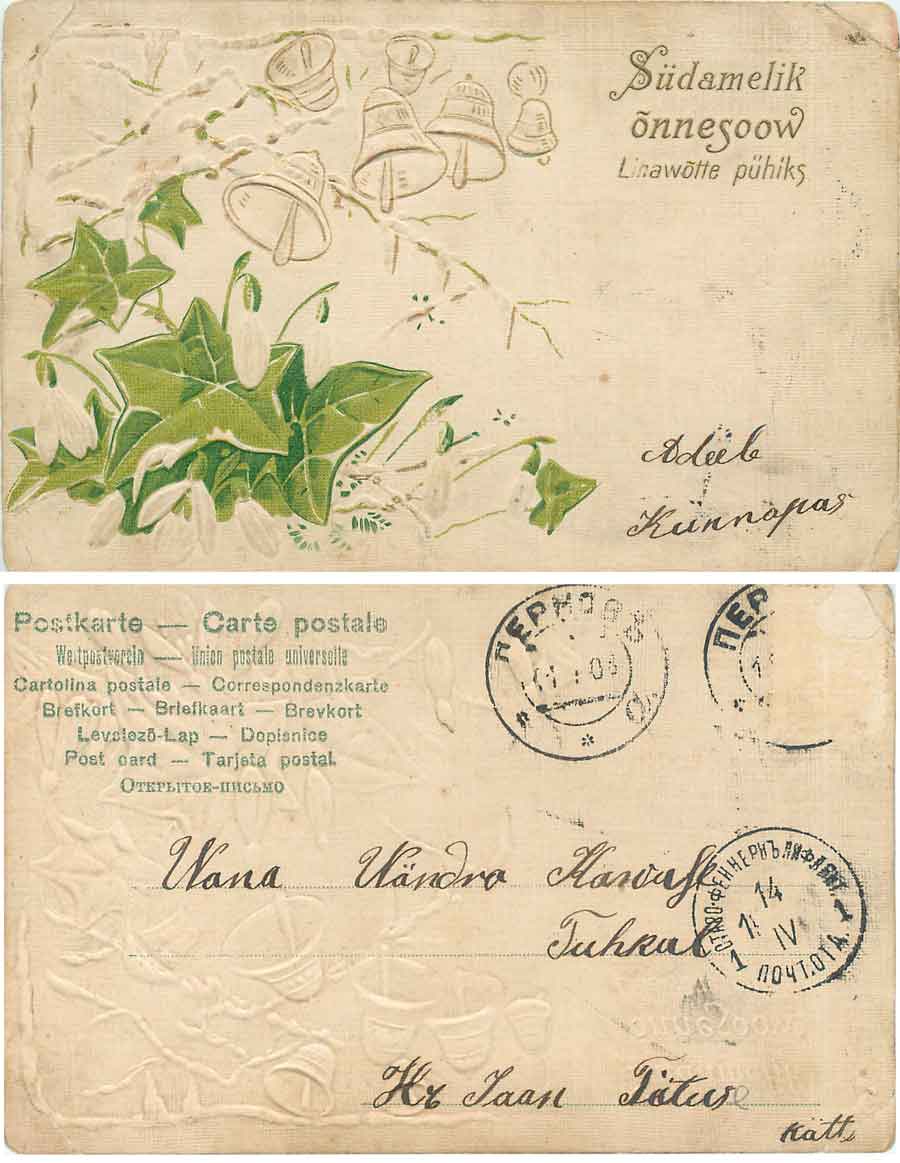 Südamelik
õnnesoow
Linawõtte pühiks
Adeele
Kunnapas
Postkarte — Carte postale
Weltpostverein — Union postale universelle
Cartolina postale — Correspondenzkarte
Brefkort — Briefkaart — Brevkort
Levelezõ-Lap — Dopisnice
Post card — Tarjeta postal.
Открытое-письмо
ПЕРНОВЪ
ПЕР
Wana Wändra Kawast
Tuhkal
СТАРО-ФЕННЕРНЪ ЛИФЛЯНД.
14
IV
1 ПОЧТ.ОТД. 1
Hr Jaan Tätuse
Kätte